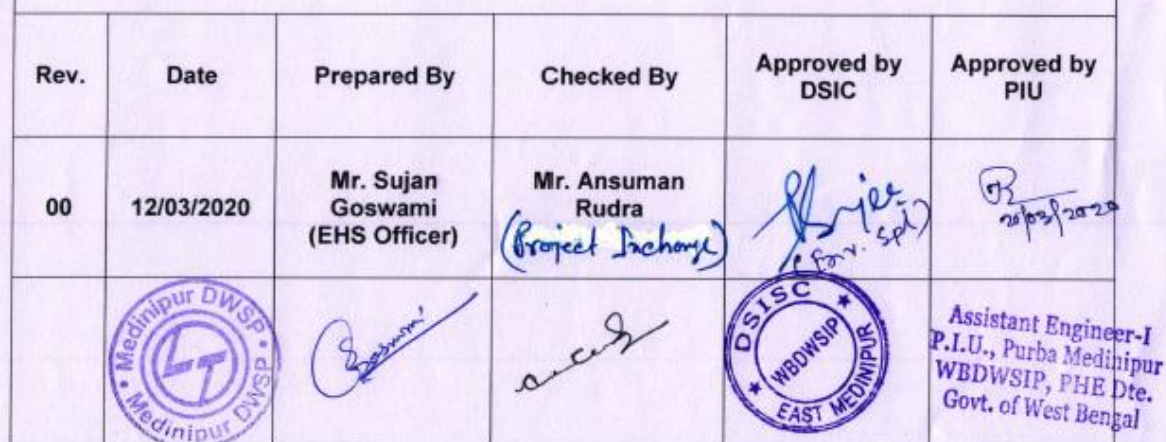 Rev.
Date
Prepared By
Checked By
Approved by
DSIC
Approved by
PIU
00
12/03/2020
Mr. Sujan
Goswami
(EHS Officer)
Mr. Ansuman
Rudra
(Project Incharge)
(Env. Spl)
Medinipur DWSP • Medinipur DWSP •
LT
DSISC
WBDWSIP
EAST MEDINIPUR
Assistant Engineer-I
P.I.U., Purba Medinipur
WBDWSIP, PHE Dte.
Govt. of West Bengal